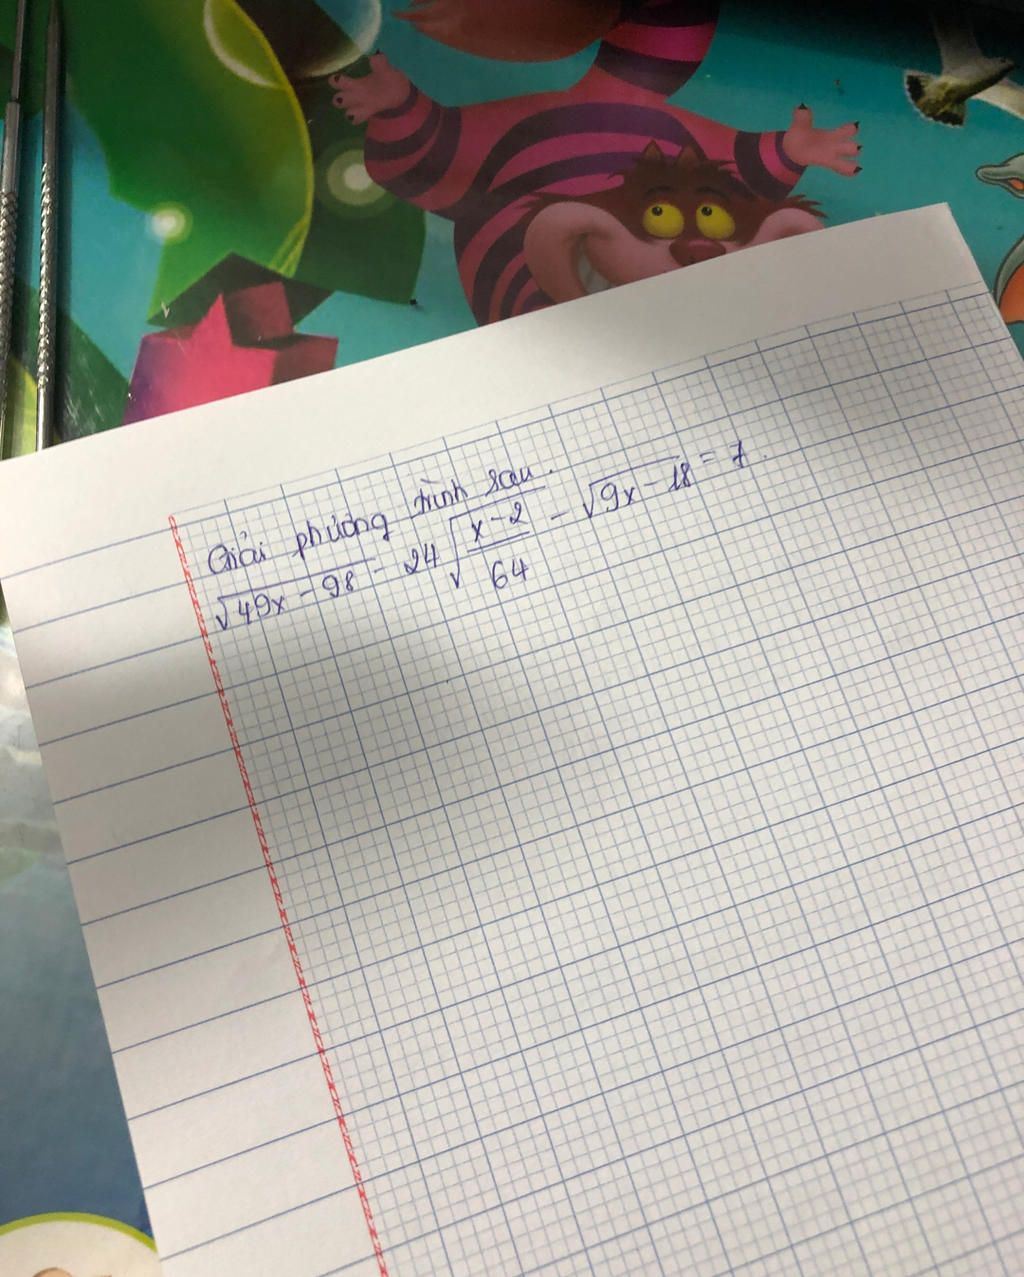 Giải phương trình sau.
√49x - 98 - 24√x - 2/64 - √9x - 18 = 7.